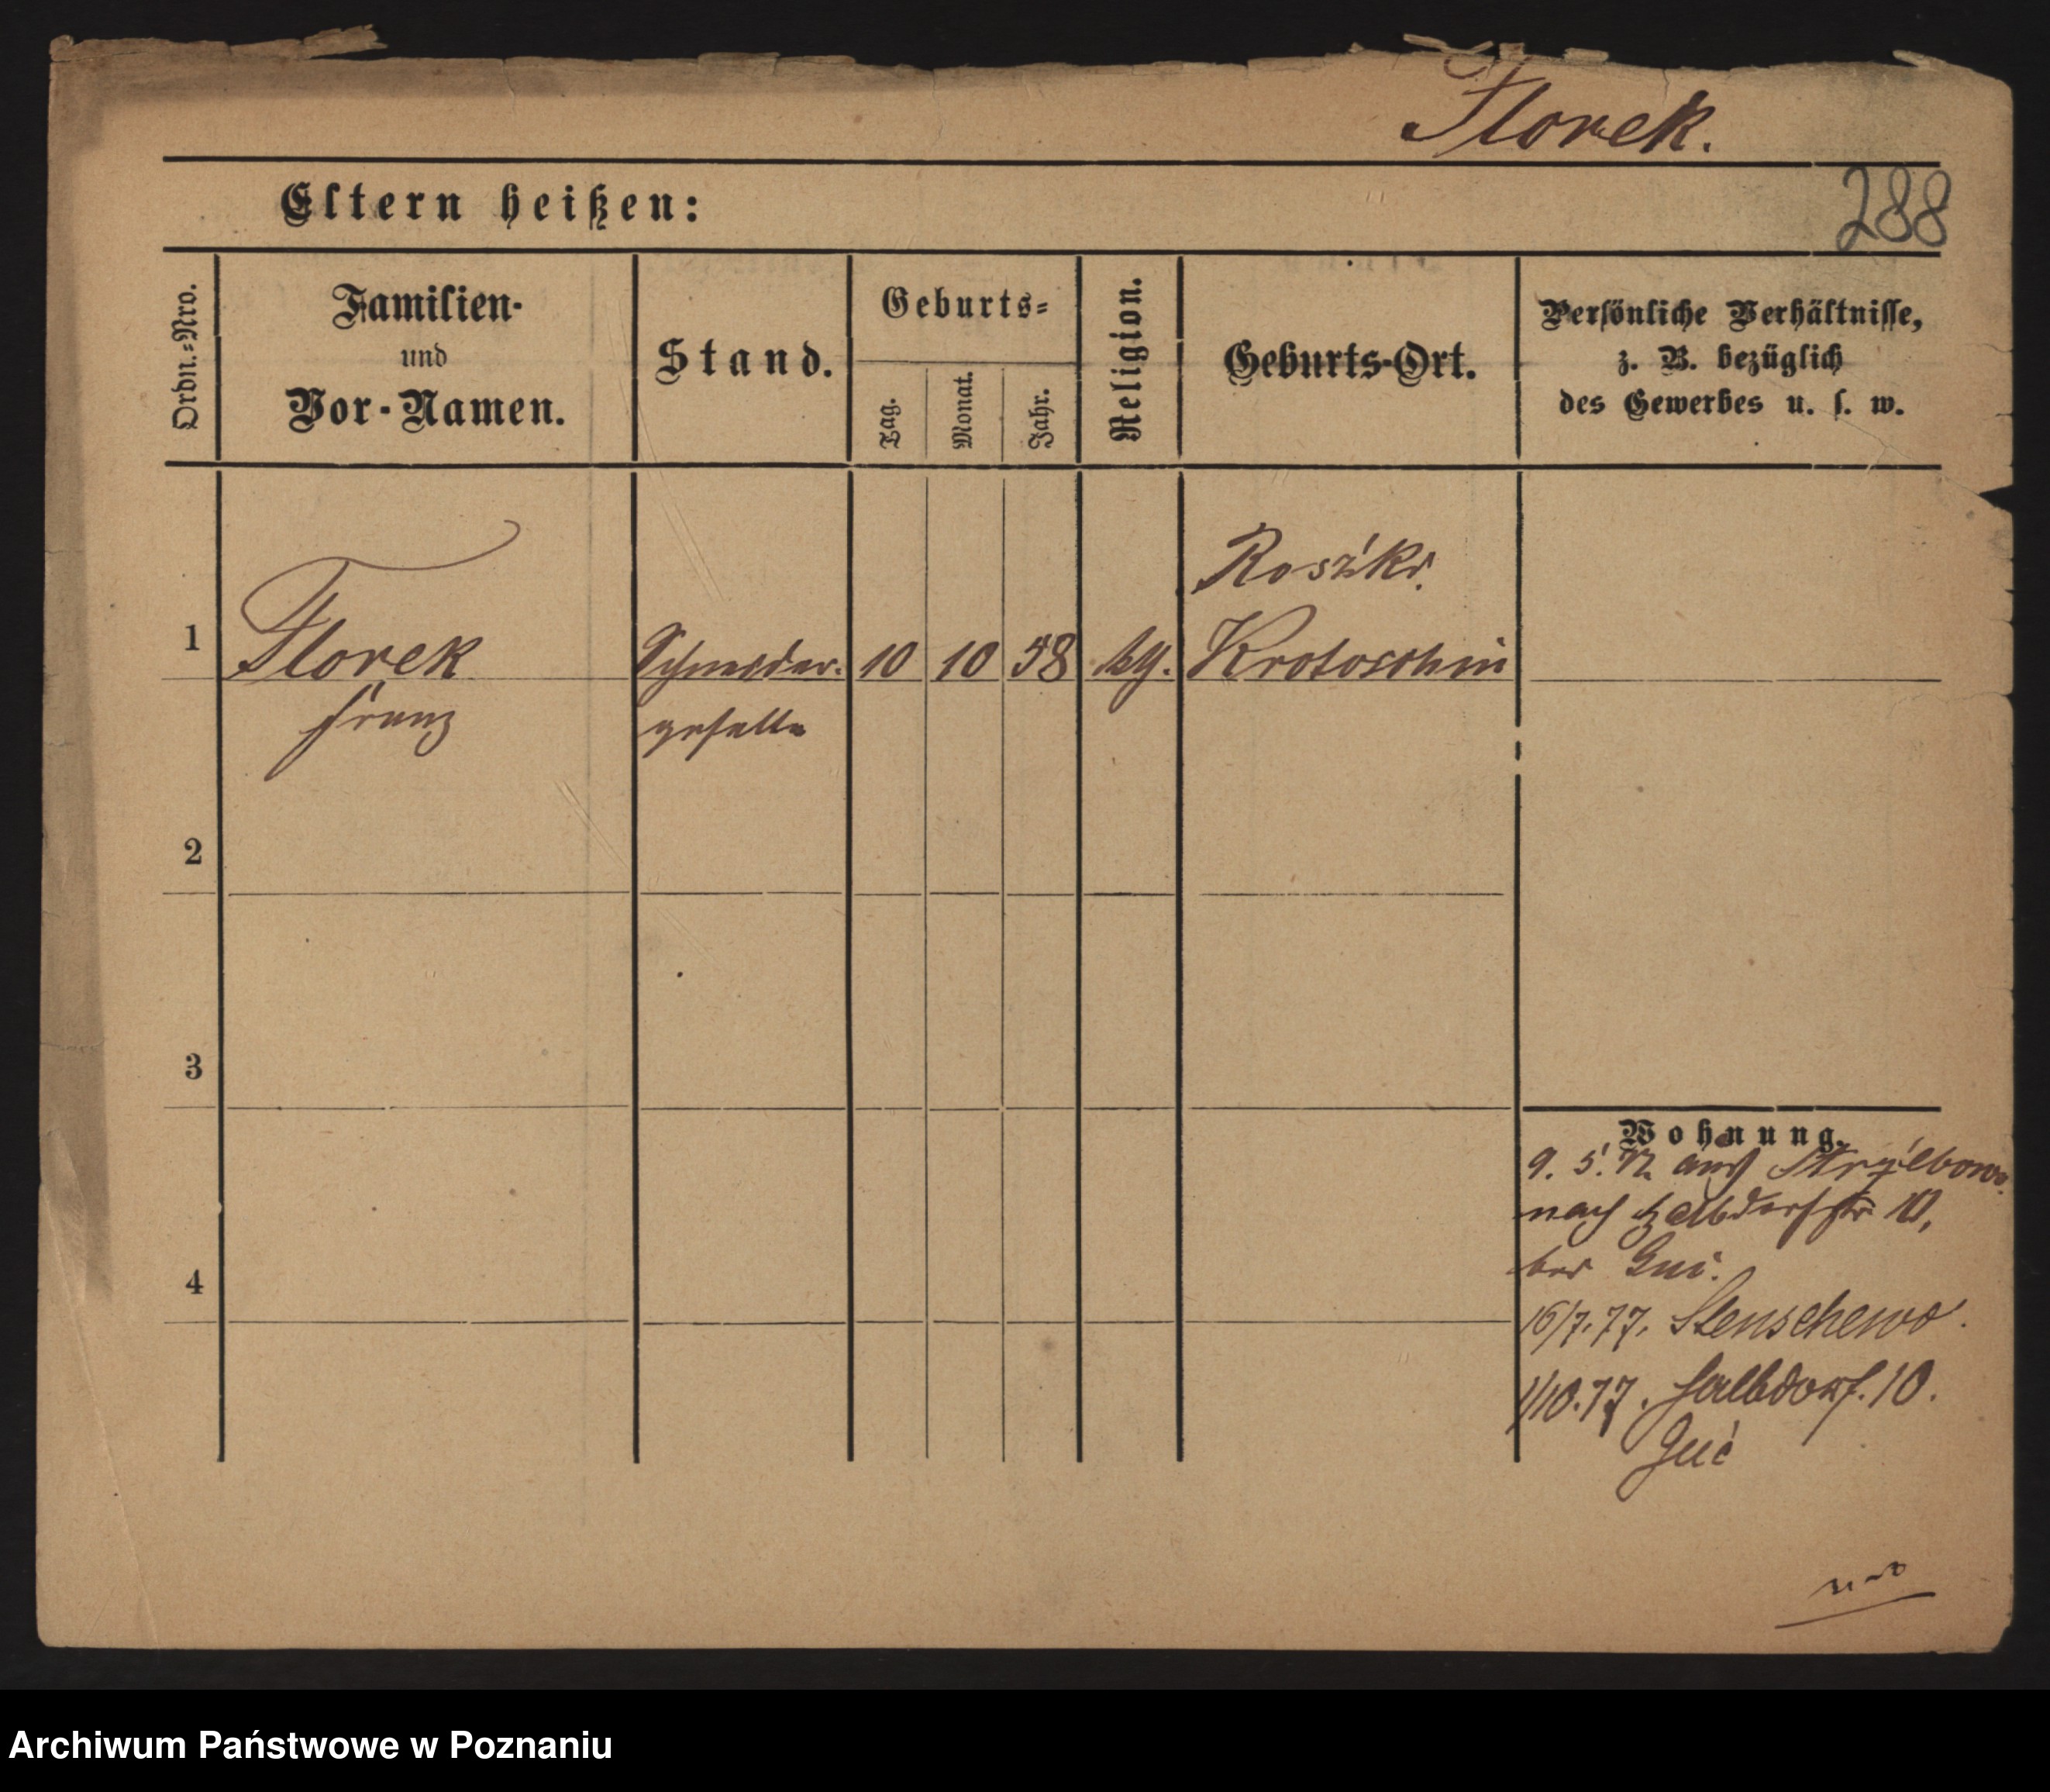 Florek.
288
Eltern heißen:
Ordn.=Nro.
Familien-
und
Vor-Namen.
Stand.
Geburts=
Tag.
Monat.
Jahr.
Religion.
Geburts-Ort.
Persönliche Verhältnisse,
z. B. bezüglich
des Gewerbes u. s. w.
1
Florek
Franz
Schneider-
geselle
10
10
58
kth.
Krotoschin
2
3
4
Wohnung.
9. 5.
nach Halbdorfstr. 10,
bei
16/7.77. Stenschewo.
1/10.77. Halbdorf. 10.
Archiwum Państwowe w Poznaniu